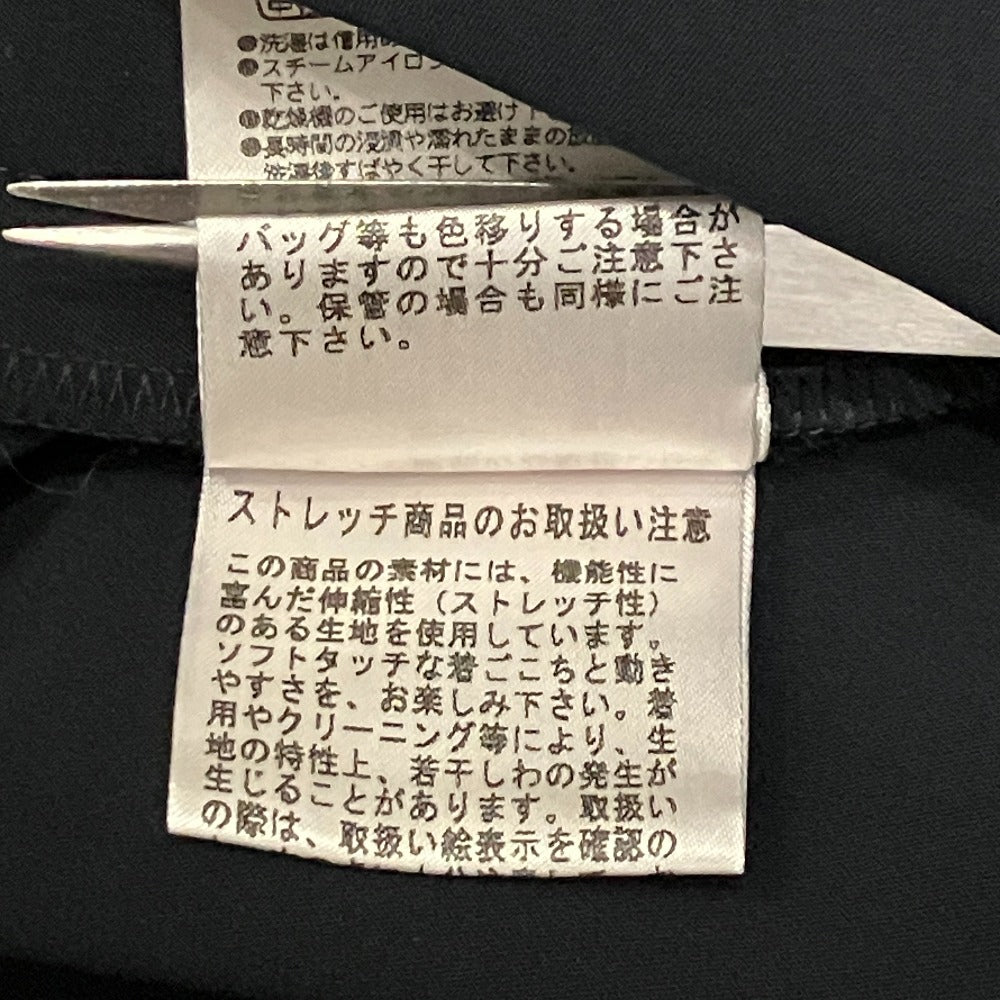 ●洗濯は信用の
●スチームアイロン
下さい。
●乾燥機のご使用はお避け下
●長時間の浸漬や濡れたままの放
洗濯後すばやく干して下さい。
バッグ等も色移りする場合が
ありますので十分ご注意下さ
い。保管の場合も同様にご注
意下さい。
ストレッチ商品のお取扱い注意
この商品の素材には、機能性に
富んだ伸縮性（ストレッチ性）
のある生地を使用しています。
ソフトタッチな着ごこちと動き
やすさを、お楽しみ下さい。着
用やクリーニング等により、生
地の特性上、若干しわの発生が
生じることがあります。取扱い
の際は、取扱い絵表示を確認の